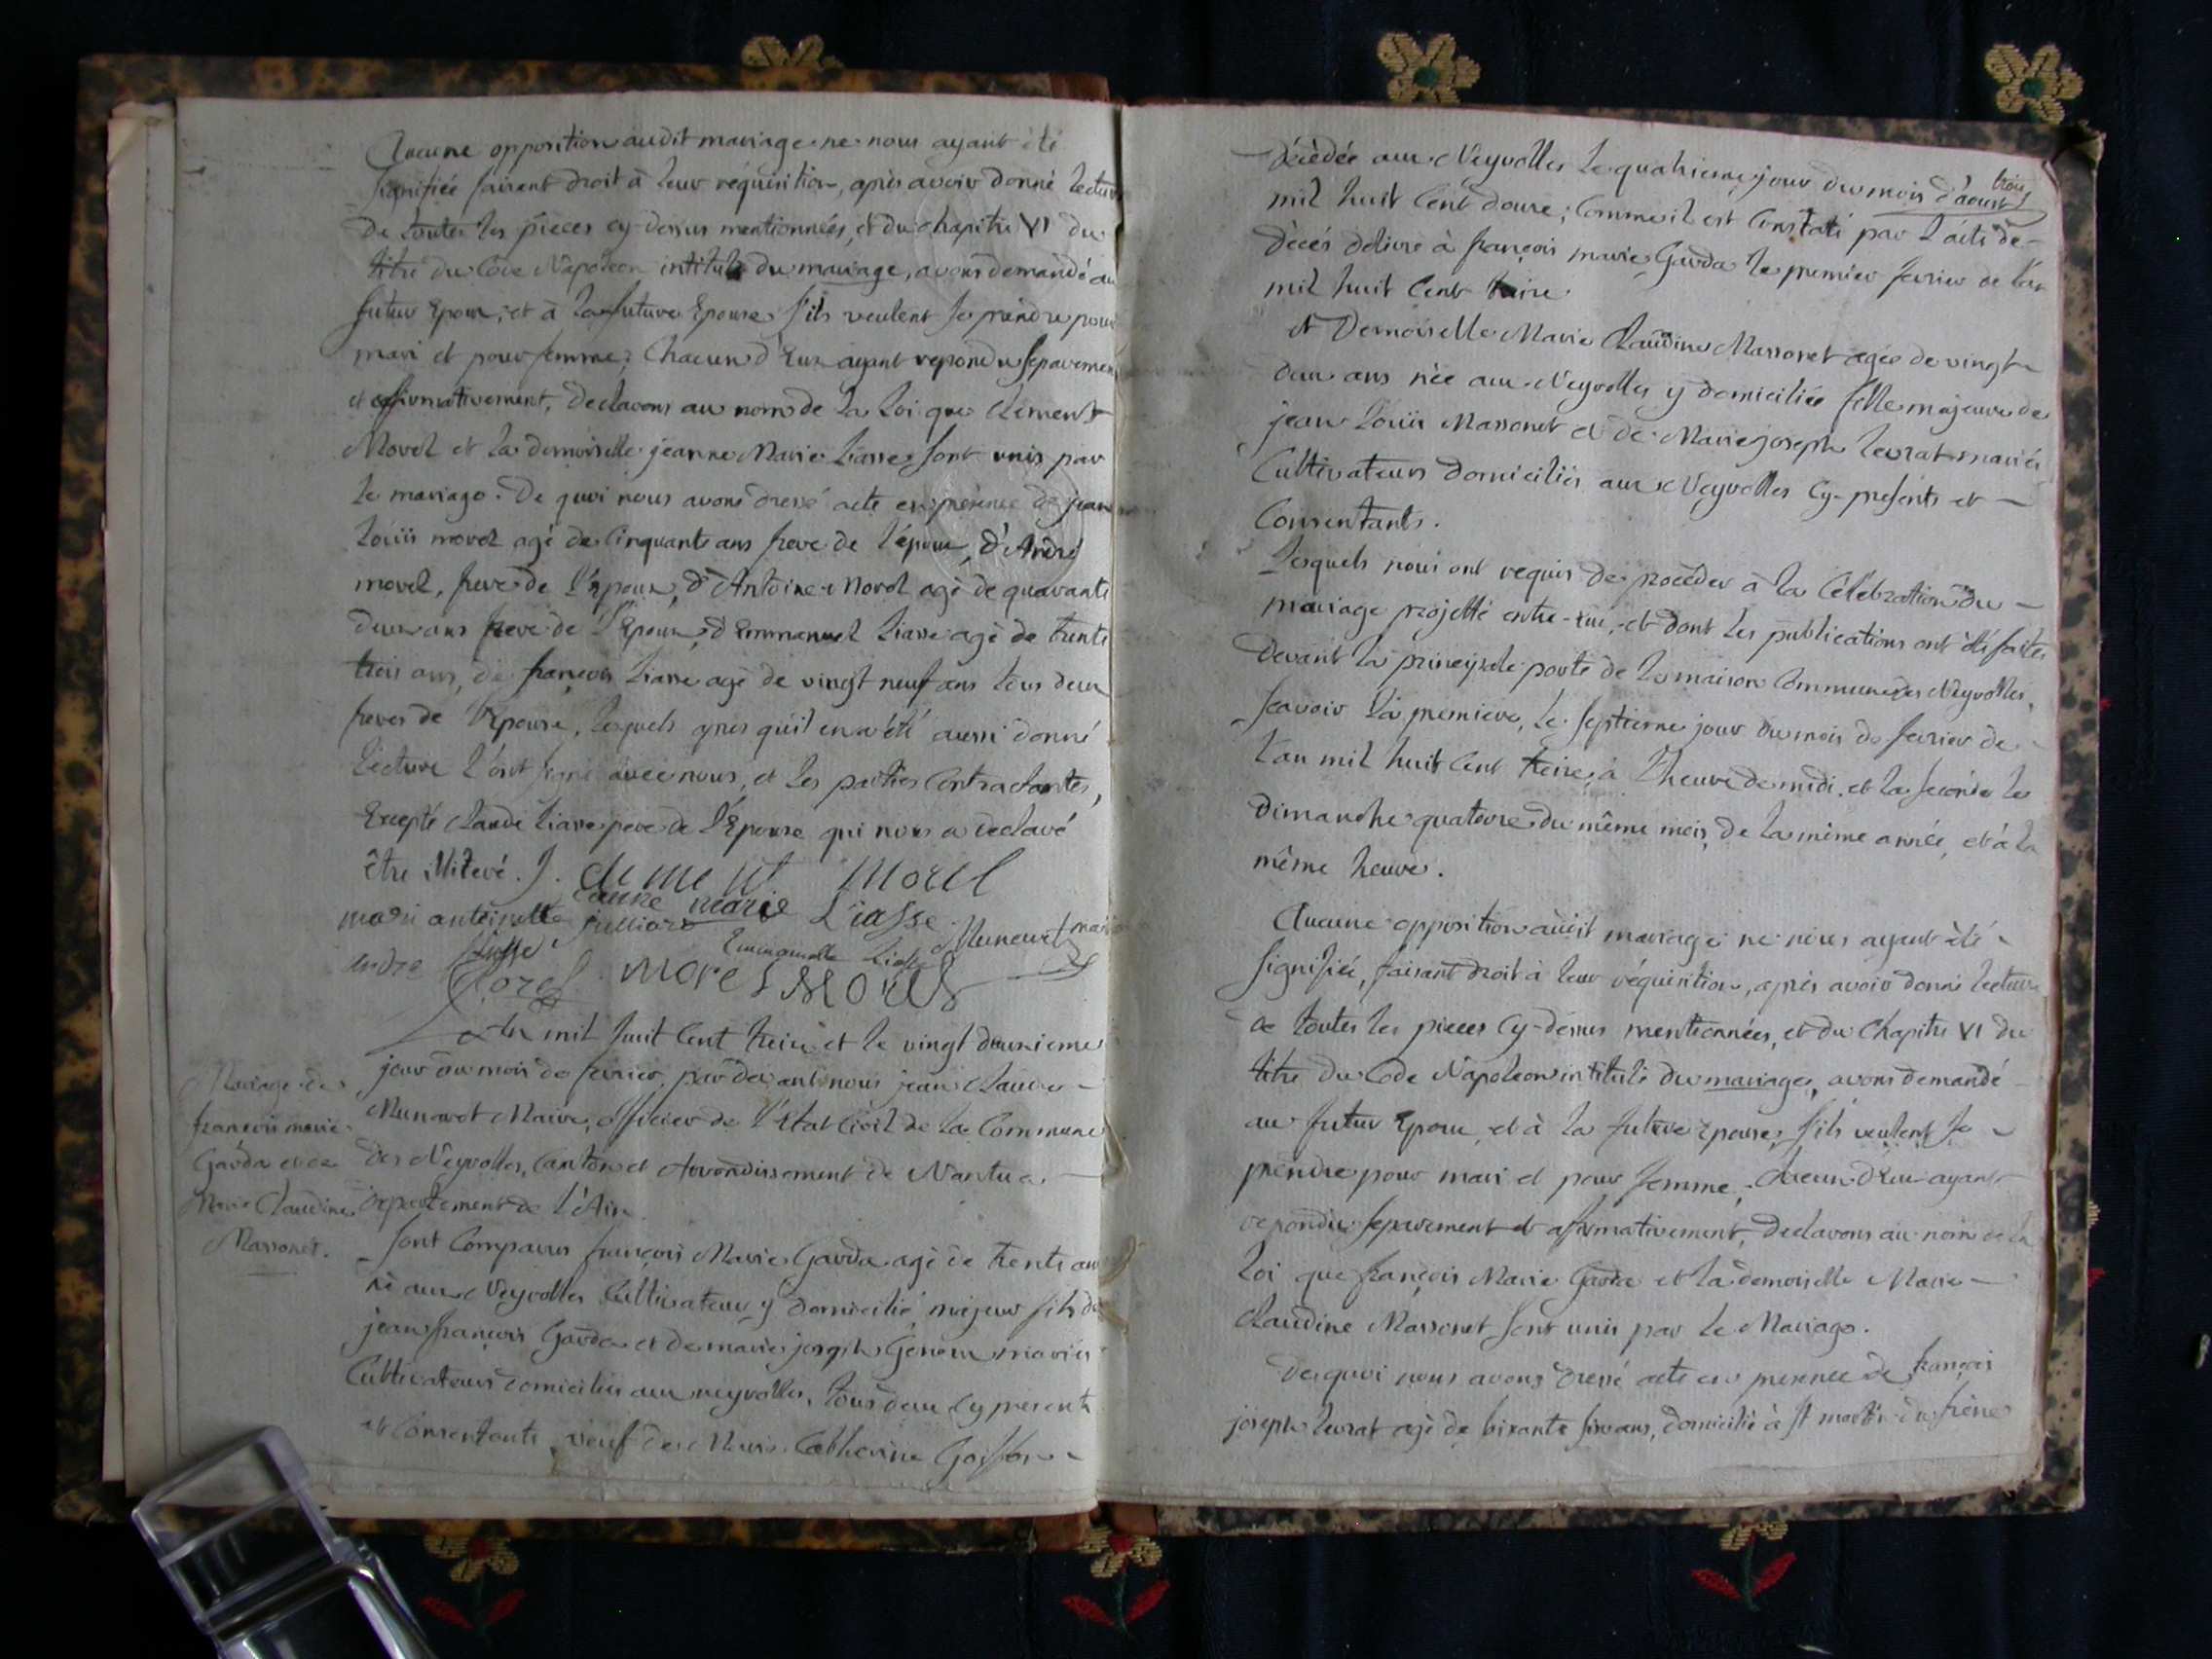 Aucune opposition audit mariage ne nous ayant été
signifiée faisant droit à leur réquisition, après avoir donné lecture
De toutes les pieces cy-dessus mentionnées, et du chapitre VI du
titre du Code Napoleon intitulé du mariage, avons demandé au
futur Epoux, et à la future Epouse s'ils veulent se prendre pour
mari et pour femme; Chacun d'Eux ayant repondu separement
et affirmativement, Declarons au nom de la Loi que Clément
Morel et la demoiselle jeanne Marie Liasse sont unis par
le mariage. De quoi nous avons dressé acte en présence de jean
Louis morel agé de Cinquante ans frere de l'époux, d'André
morel, frere de l'Epoux, d'Antoine Morel agé de quarante
deux ans frere de l'Epoux, d'Emmanuel Liasse agé de trente
trois ans, de françois Liasse agé de vingt neuf ans tous deux
freres de l'Epouse, lesquels apres qu'il en a été aussi donné
Lecture l'ont signé avec nous, et les parties Contractantes,
Excepté Claude Liasse pere de l'Epouse qui nous a declaré
être illiteré. J. clement morel
marie antoinette julliard jeanne marie Liasse
Liasse Emmanuelle Liasse Munewet maire
andre morel morel Morel
L'an mil huit Cent treize et le vingt deuxieme
jour du mois de fevrier, par devant nous jean Claude
Munaret Maire, officier de l'Etat Civil de la Commune
des Neyrolles, canton et Arrondissement de Nantua
departement de l'Ain
Mariage de
françois marie
Garda et de
Marie Claudine
Massonet.
Sont Comparus françois Marie Garda agé de trente ans
né aux Neyrolles Cultivateur y domicilié, majeur fils de
jean françois Garda et de marie joseph Genoux mariés
Cultivateurs domiciliés aux neyrolles, tous deux cy presents
et Consentants, veuf de Marie Catherine Goiffon
décédée aux Neyrolles le quatrieme jour du mois d'aoust trois
mil huit Cent douze; Comme il est Constaté par l'acte de
décés délivré à françois marie Garda le premier fevrier de l'an
mil huit Cent treize.
et Demoiselle Marie Claudine Massonet agée de vingt
deux ans née aux Neyrolles y domiciliée fille majeure de
jean Louis Massonet et de Marie joseph Levrat mariés
Cultivateurs domiciliés aux Neyrolles Cy-presents et
Consentants.
Lesquels nous ont requis de procéder à la Célébration du
mariage projetté entre-eux, et dont les publications ont été faites
devant la principale porte de la maison Commune des Neyrolles,
sçavoir la premiere, le septieme jour du mois de fevrier de
l'an mil huit Cent treize, à l'heure de midi, et la seconde le
dimanche quatorze du même mois, de la même année, et à la
même heure.
Aucune opposition audit mariage ne nous ayant été
signifiée, faisant droit à leur réquisition, après avoir donné lecture
de toutes les pieces Cy-dessus mentionnées, et du Chapitre VI du
titre du Code Napoleon intitulé du mariage, avons demandé
au futur Epoux, et à la future Epouse, s'ils veulent se
prendre pour mari et pour femme; chacun d'Eux ayant
repondu separement et affirmativement, declarons au nom de la
Loi que françois Marie Garda et la demoiselle Marie
Claudine Massonet sont unis par le Mariage.
De quoi nous avons dressé acte en presence de françois
joseph Levrat agé de soixante six ans, domicilié à St martin du frene